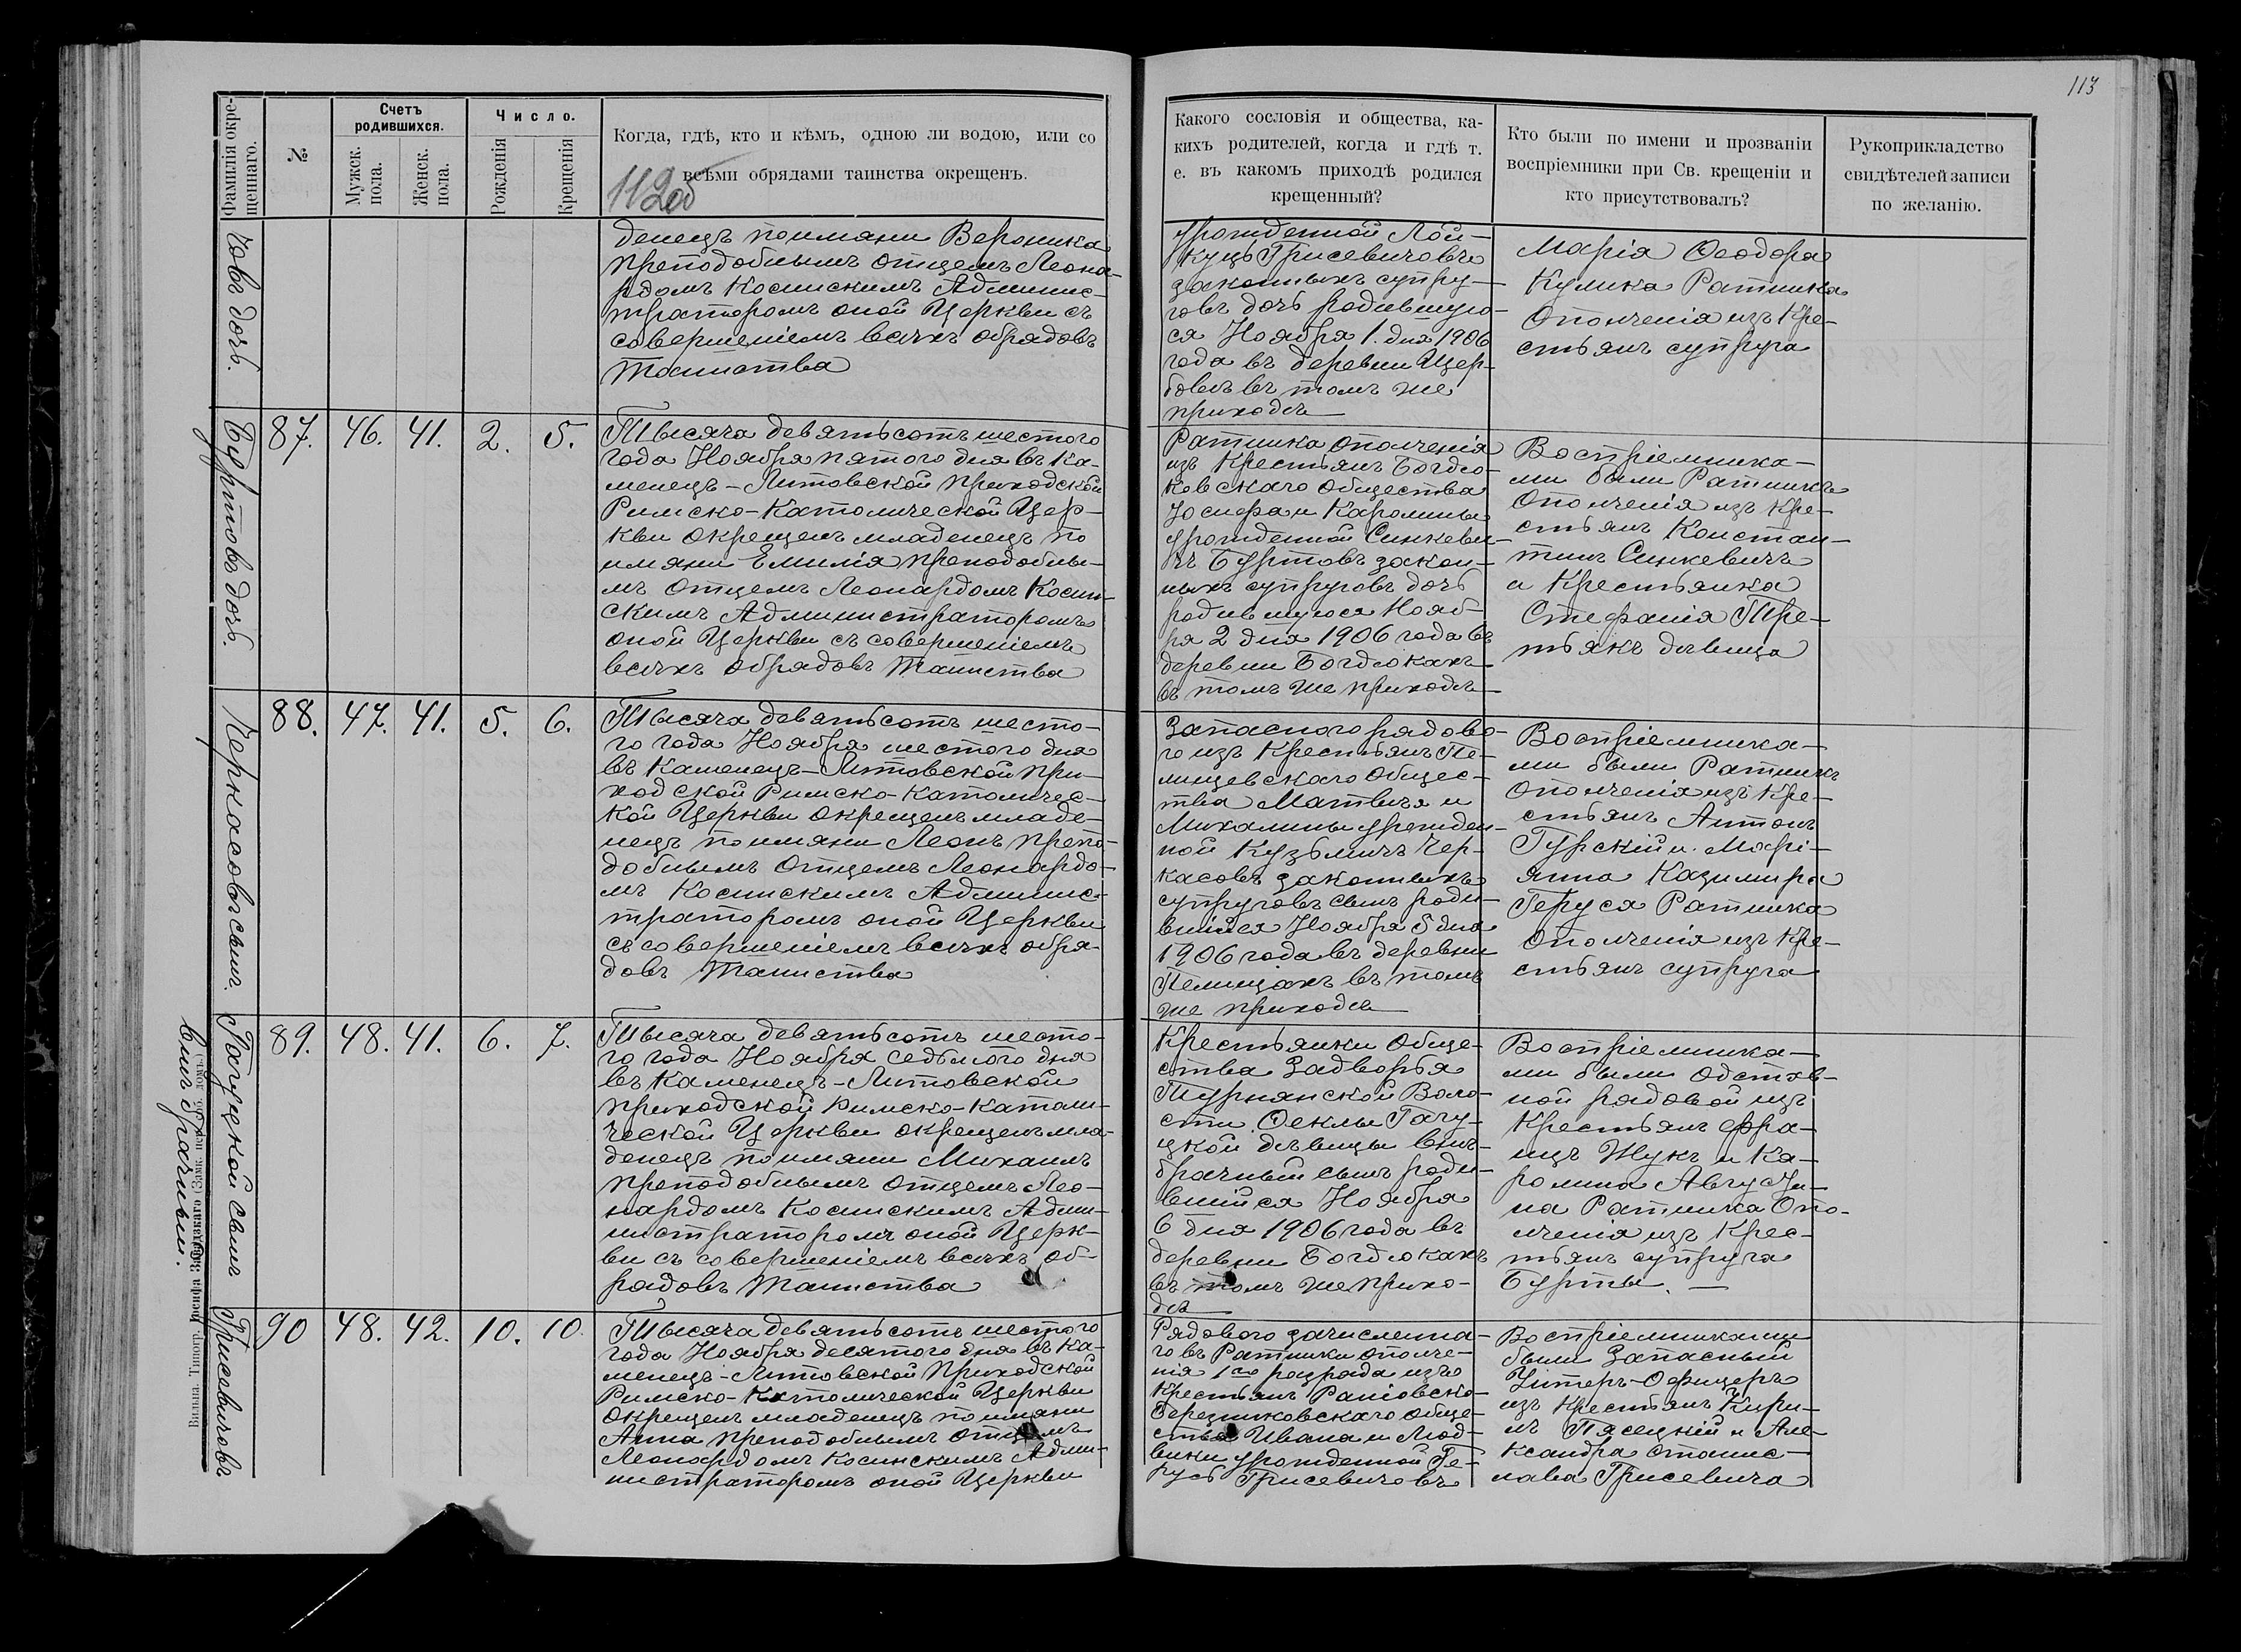 113
Фамилія окре-
щеннаго.
№
Счетъ
родившихся.
Мужск.
пола.
Женск.
пола.
Число.
Рожденія
Крещенія
Когда, гдѣ, кто и кѣмъ, одною ли водою, или со
всѣми обрядами таинства окрещенъ.
112об
Какого сословія и общества, ка-
кихъ родителей, когда и гдѣ т.
е. въ какомъ приходѣ родился
крещенный?
Кто были по имени и прозваніи
воспріемники при Св. крещеніи и
кто присутствовалъ?
Рукоприкладство
свидѣтелей записи
по желанію.
човъ дочь.
денецъ по имяни Вероника
преподобнымъ отцемъ Леона-
рдомъ Косинскимъ Админис-
траторомъ оной Церкви съ
совершеніемъ всѣхъ обрядовъ
Таинства
урожденной Лой-
куцъ Грисевичовъ
законныхъ супру-
говъ дочь родившую-
ся Ноября 1. дня 1906
года въ деревни Щер-
бовъ въ томъ же
приходѣ
Марія Ѳеодора
Кулика Ратника
Ополченія изъ Кре-
стьянъ супруга
Буртовъ дочь.
87. 46. 41. 2. 5.
Тысяча девятьсотъ шестого
года Ноября пятого дня въ Ка-
менецъ-Литовской приходской
Римско-Католической Цер-
кви окрещенъ младенецъ по
имяни Емилія преподобны-
мъ Отцемъ Леонардомъ Косин-
скимъ Администраторомъ
оной Церкви съ совершеніемъ
всѣхъ обрядовъ Таинства
Ратника ополченія
изъ Крестьянъ Богдю-
ковскаго общества
Іосифа и Каролины
урожденной Синкеви-
чъ Буртовъ закон-
ныхъ супруговъ дочь
родившуюся Нояб-
ря 2 дня 1906 года въ
деревни Богдюкахъ
въ томъ же приходѣ
Воспріемника-
ми были Ратникъ
Ополченія изъ Кре-
стьянъ Констан-
тинъ Синкевичъ
и Крестьянка
Стефанія Тре-
тьякъ дѣвица
Черкасовъ сынъ.
88. 47. 41. 5. 6.
Тысяча девятьсотъ шесто-
го года Ноября шестого дня
въ Каменецъ-Литовской при-
ходской Римско-Католичес-
кой Церкви окрещенъ младе-
нецъ по имяни Леонъ препо-
добнымъ Отцемъ Леонардо-
мъ Косинскимъ Админис-
траторомъ оной Церкви
съ совершеніемъ всѣхъ обря-
довъ Таинства
Запасного рядово-
го изъ Крестьянъ Пе-
лищевскаго общес-
тва Матвѣя и
Михалины урожден-
ной Кузьмичъ Чер-
касовъ законныхъ
супруговъ сынъ роди-
вшійся Ноября 5 дня
1906 года въ деревни
Пелищахъ въ томъ
же приходѣ
Воспріемника-
ми были Ратникъ
Ополченія изъ Кре-
стьянъ Антонъ
Гурскій и Марі-
янна Казимира
Геруся Ратника
Ополченія изъ Кре-
стьянъ супруга
Гагуцкой сынъ
внѣбрачный.
89. 48. 41. 6. 7.
Тысяча девятьсотъ шесто-
го года Ноября седьмого дня
въ Каменецъ-Литовской
приходской Римско-Католи-
ческой Церкви окрещенъ мла-
денецъ по имяни Михаилъ
преподобнымъ отцемъ Лео-
нардомъ Косинскимъ Адми-
нистраторомъ оной Церк-
ви съ совершеніемъ всѣхъ об-
рядовъ Таинства
Крестьянки Обще-
ства Задворья
Турнянской Воло-
сти Ѳеклы Гагу-
цкой дѣвицы внѣ-
брачный сынъ роди-
вшійся Ноября
6 дня 1906 года въ
деревни Богдюкахъ
въ томъ же прихо-
дѣ
Воспріемника-
ми были Одстав-
ной рядовой изъ
Крестьянъ Фра-
нцъ Жукъ и Ка-
ролина
на Ратника Опо-
лченія изъ Крес-
тьянъ супруга
Бурты.
Грисевичовъ
90 48. 42. 10. 10.
Тысяча девятьсотъ шестого
года Ноября десятого дня въ Ка-
менецъ-Литовской Приходской
Римско-Католической Церкви
окрещенъ младенецъ по имяни
Анна преподобнымъ отцемъ
Леонардомъ Косинскимъ Адми-
нистраторомъ оной Церкви
Рядового зачисленна-
го въ Ратники ополче-
нія 1го разряда изъ
Крестьянъ
общe-
ства Ивана и Люд-
вики урожденной Ге-
русь Грисевичовъ
Воспріемниками
были Запасный
Унтеръ-Офицеръ
изъ Крестьянъ Кири-
лъ Пясецкій и Але-
ксандра Станис-
лава Грисевича